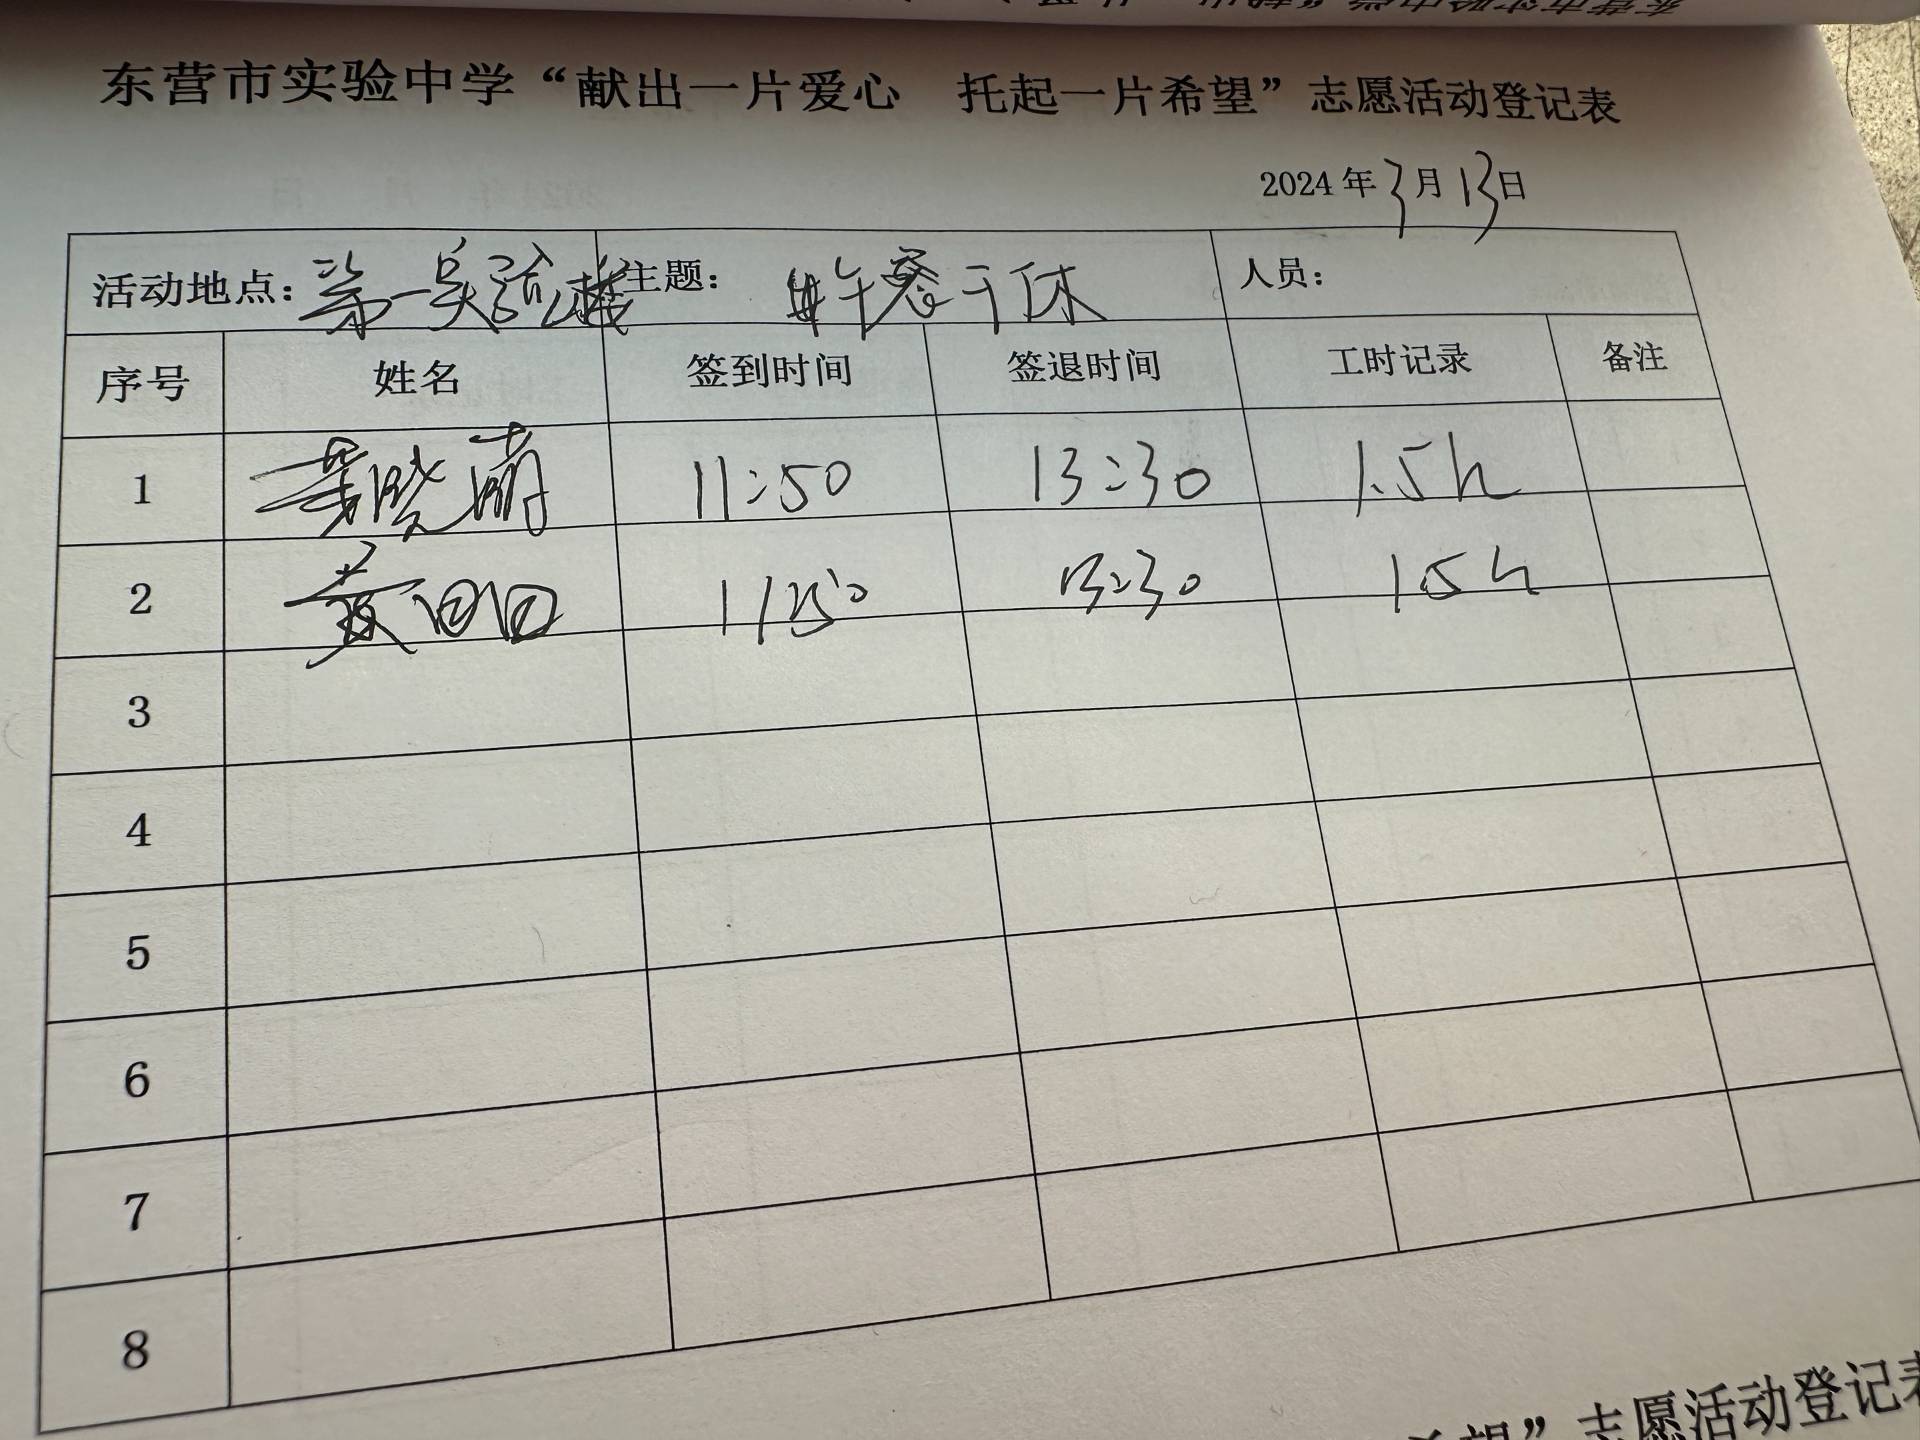 东营市实验中学“献出一片爱心 托起一片希望”志愿活动登记表
2024年3月13日
活动地点：第一实验楼 主题： 午餐午休 人员：
序号 姓名 签到时间 签退时间 工时记录 备注
1 晓萌 11:50 13:30 1.5h
2 黄 11:50 13:30 1.5h
3
4
5
6
7
8
希望”志愿活动登记表